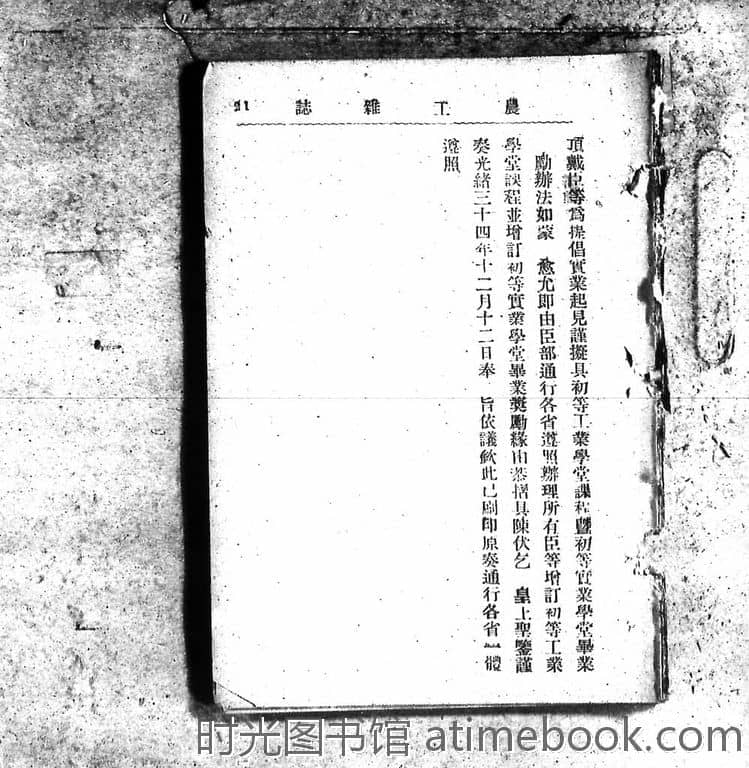 農工雜誌
頂戴臣等爲提倡實業起見謹擬具初等工業學堂課程暨初等實業學堂畢業
勵辦法如蒙 愈允即由臣部通行各省遵照辦理所有臣等增訂初等工業
學堂課程並增訂初等實業學堂畢業獎勵緣由恭摺具陳伏乞 皇上聖鑒謹
奏光緒三十四年十二月十二日奉 旨依議欽此已刷印原奏通行各省一體
遵照
时光图书馆 atimebook.com